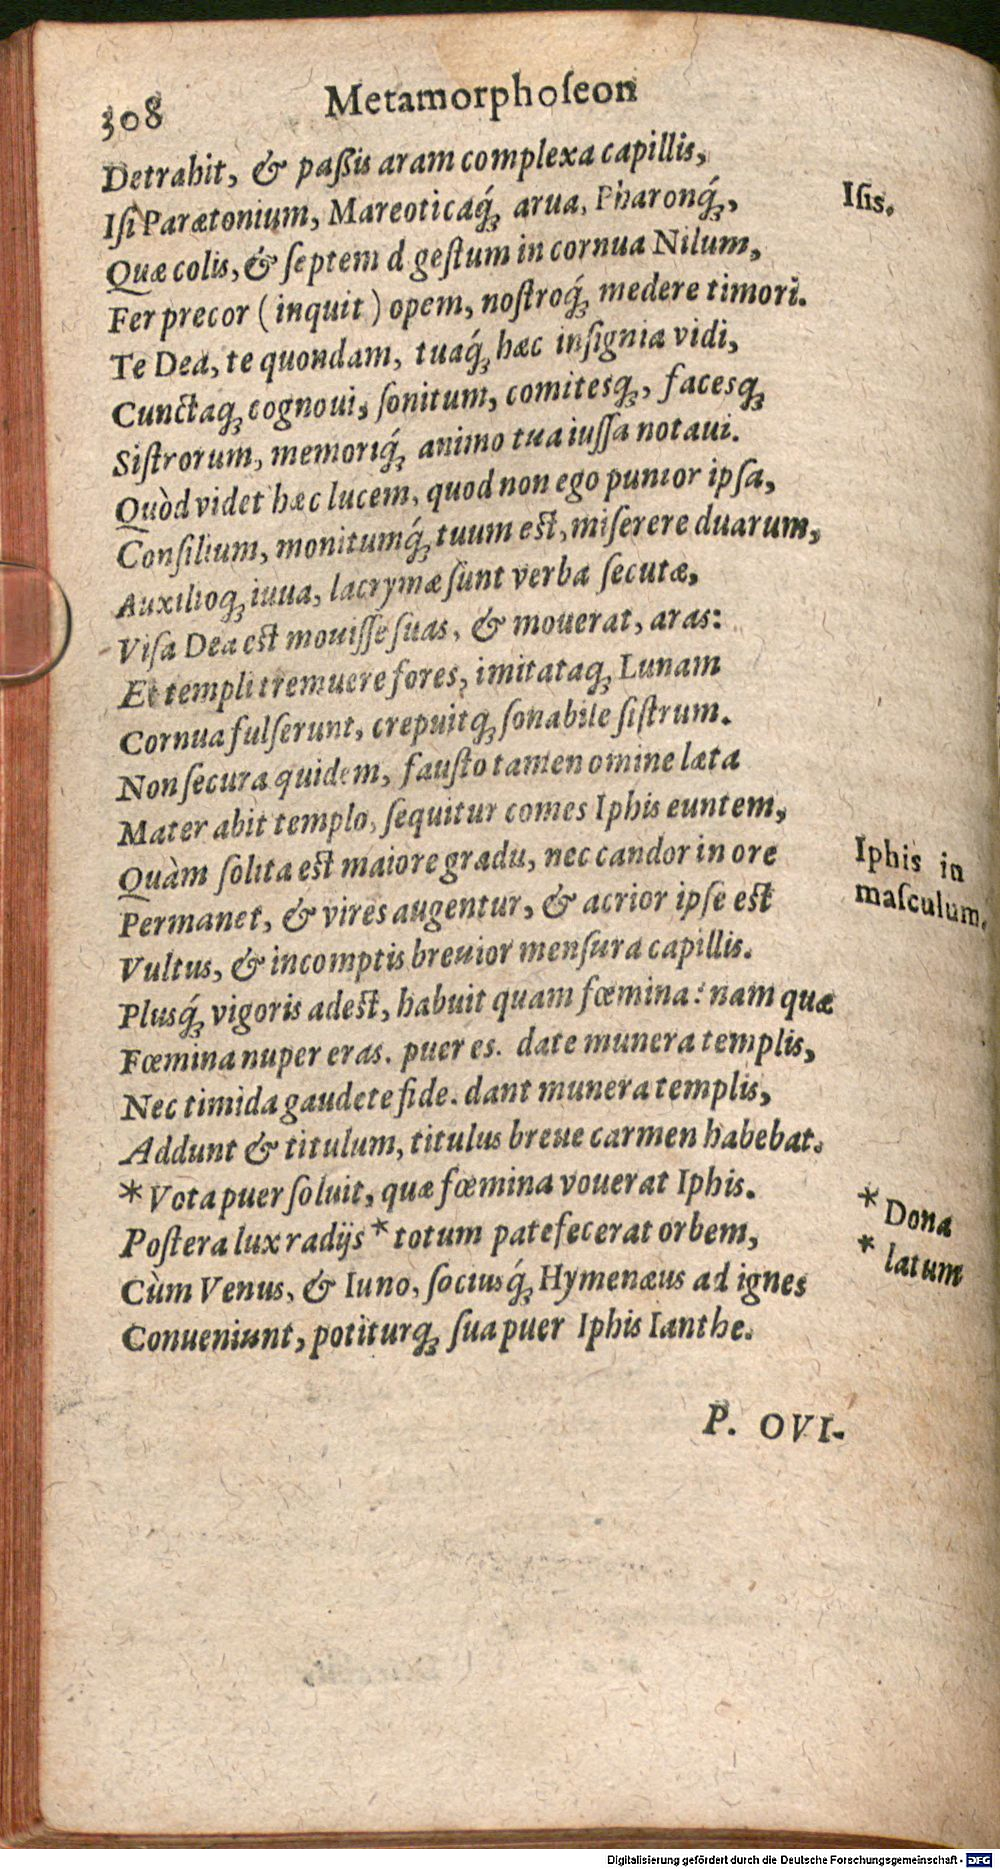 308 Metamorphoſeon
Detrahit, & paßis aram complexa capillis,
Iſi Parætonium, Mareoticaq́ꝫ arua, Pharonq́ꝫ,
Iſis.
Quæ colis, & ſeptem d geſtum in cornua Nilum,
Fer precor (inquit) opem, noſtroq́ꝫ medere timori.
Te Dea, te quondam, tuaq́ꝫ hæc inſignia vidi,
Cunctaqꝫ cognoui, ſonitum, comitesqꝫ, facesqꝫ
Siſtrorum, memoriq́ꝫ animo tua iuſſa notaui.
Quòd videt hæc lucem, quod non ego punior ipſa,
Conſilium, monitumq́ꝫ tuum est, miſerere duarum,
Auxilioqꝫ iuua, lacrymæ ſunt verba ſecutæ,
Viſa Dea est mouiſſe ſuas, & mouerat, aras:
Et templi tremuere fores, imitataqꝫ Lunam
Cornua fulſerunt, crepuitqꝫ ſonabile ſiſtrum.
Non ſecura quidem, fauſto tamen omine læta
Mater abit templo, ſequitur comes Iphis euntem,
Quàm ſolita est maiore gradu, nec candor in ore
Iphis in
maſculum.
Permanet, & vires augentur, & acrior ipſe est
Vultus, & incomptis breuior menſura capillis.
Plusq́ꝫ vigoris adest, habuit quam fœmina: nam quæ
Fœmina nuper eras. puer es. date munera templis,
Nec timida gaudete fide. dant munera templis,
Addunt & titulum, titulus breue carmen habebat.
* Vota puer ſoluit, quæ fœmina vouerat Iphis.
* Dona
Poſtera lux radijs * totum patefecerat orbem,
* latum
Cùm Venus, & Iuno, ſociusq́ꝫ Hymenæus ad ignes
Conueniunt, potiturqꝫ ſua puer Iphis Ianthe.
P. OVI-
Digitalisierung gefördert durch die Deutsche Forschungsgemeinschaft - DFG